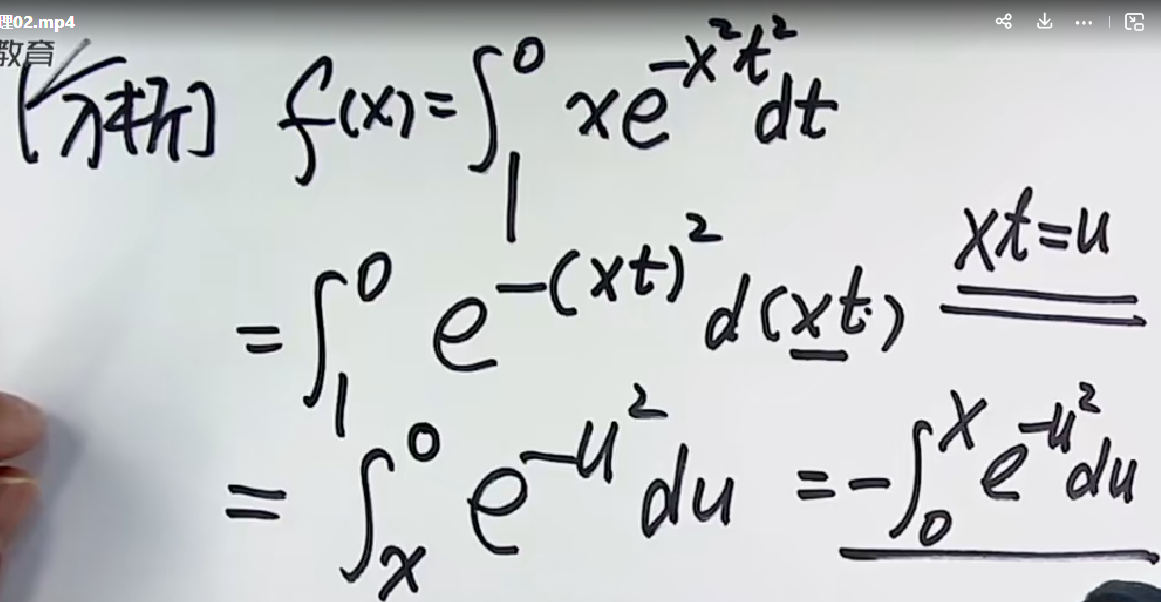 理02.mp4
教育
[分析] f(x)=∫₁⁰ xe^{-x²t²}dt
=∫₁⁰ e^{-(xt)²}d(xt) xt=u
=∫ₓ⁰ e^{-u²}du =-∫₀ˣ e^{-u²}du